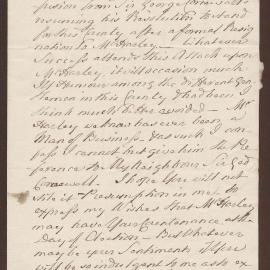 pression from Sir George Cornewall
nouncing his Resolution to stand
for this County after a formal Resig
nation to Mr Harley. Whatever
Success attends this Attack upon
Mr Harley, it will occasion much
Ill Humour among the different Gen
tlemen in this County & had been I
think much better avoided — Mr
Harley we know has ever been a
Man of Business. & as such I con
fess I cannot but give him the Pre
ference to My Neighbour Sir Geo
Cornewall. I hope you will not
think it Presumption in me to
express my Wishes that Mr Harley
may have your Countenance at the
Day of Election. But whatever
may be your Sentiments I hope
will be so indulgent to me as to ex